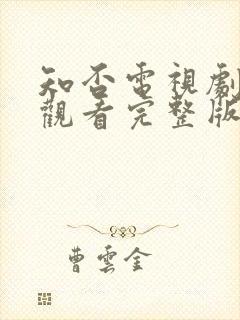 知否電視劇
觀看完整版
曹雲金